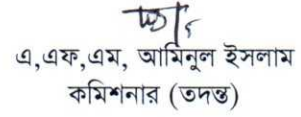 এ,এফ,এম, আমিনুল ইসলাম
কমিশনার (তদন্ত)